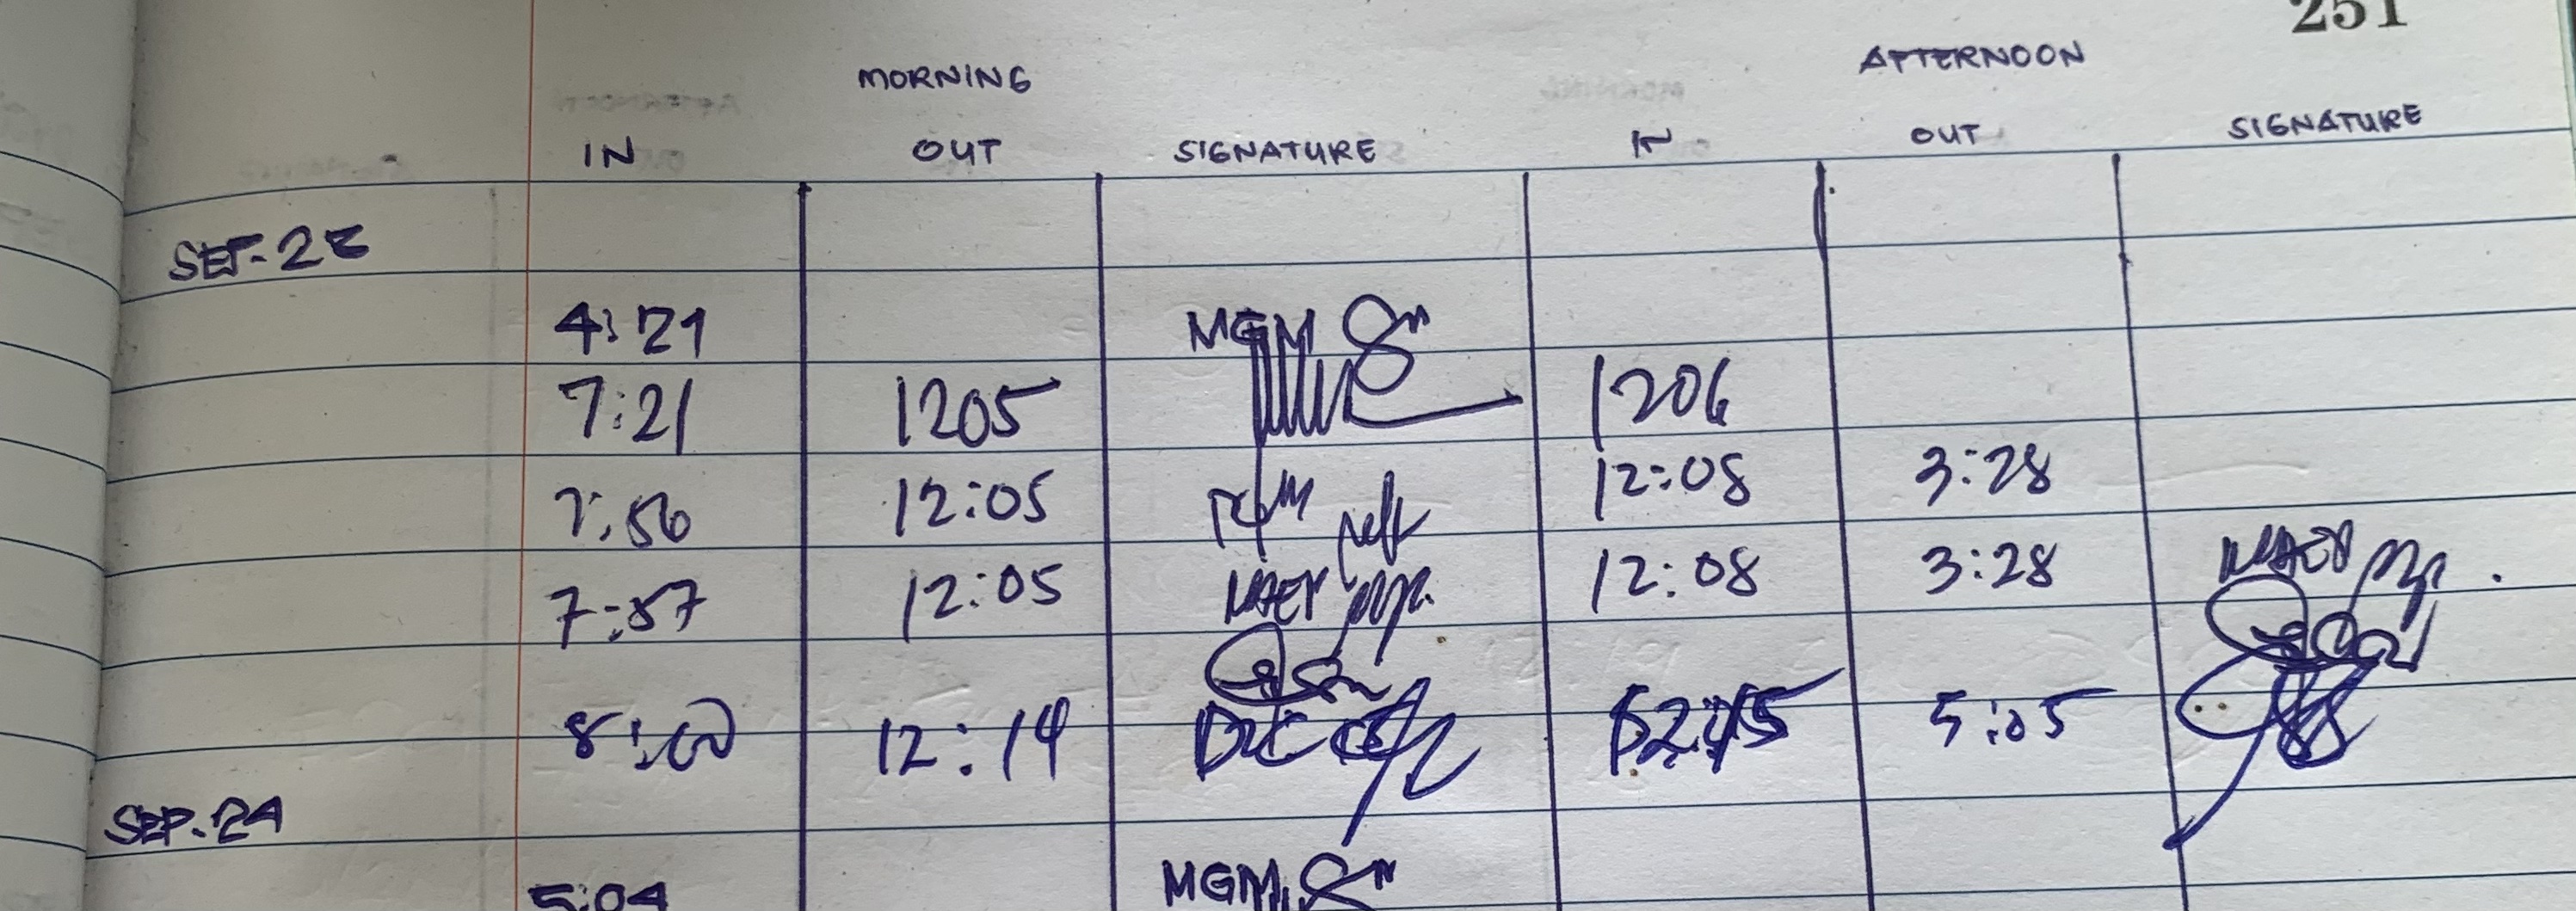 251
MORNING AFTERNOON
IN OUT SIGNATURE IN OUT SIGNATURE
SEP.
4:21 MGM
7:21 1205 1206
7:56 12:05 12:08 3:28
7:57 12:05 12:08 3:28
8:00 12:14 5:05
SEP. 24
5:04 MGM